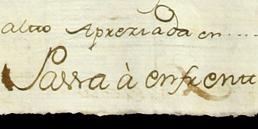 alño Apreziada en....
Passa à enfrente